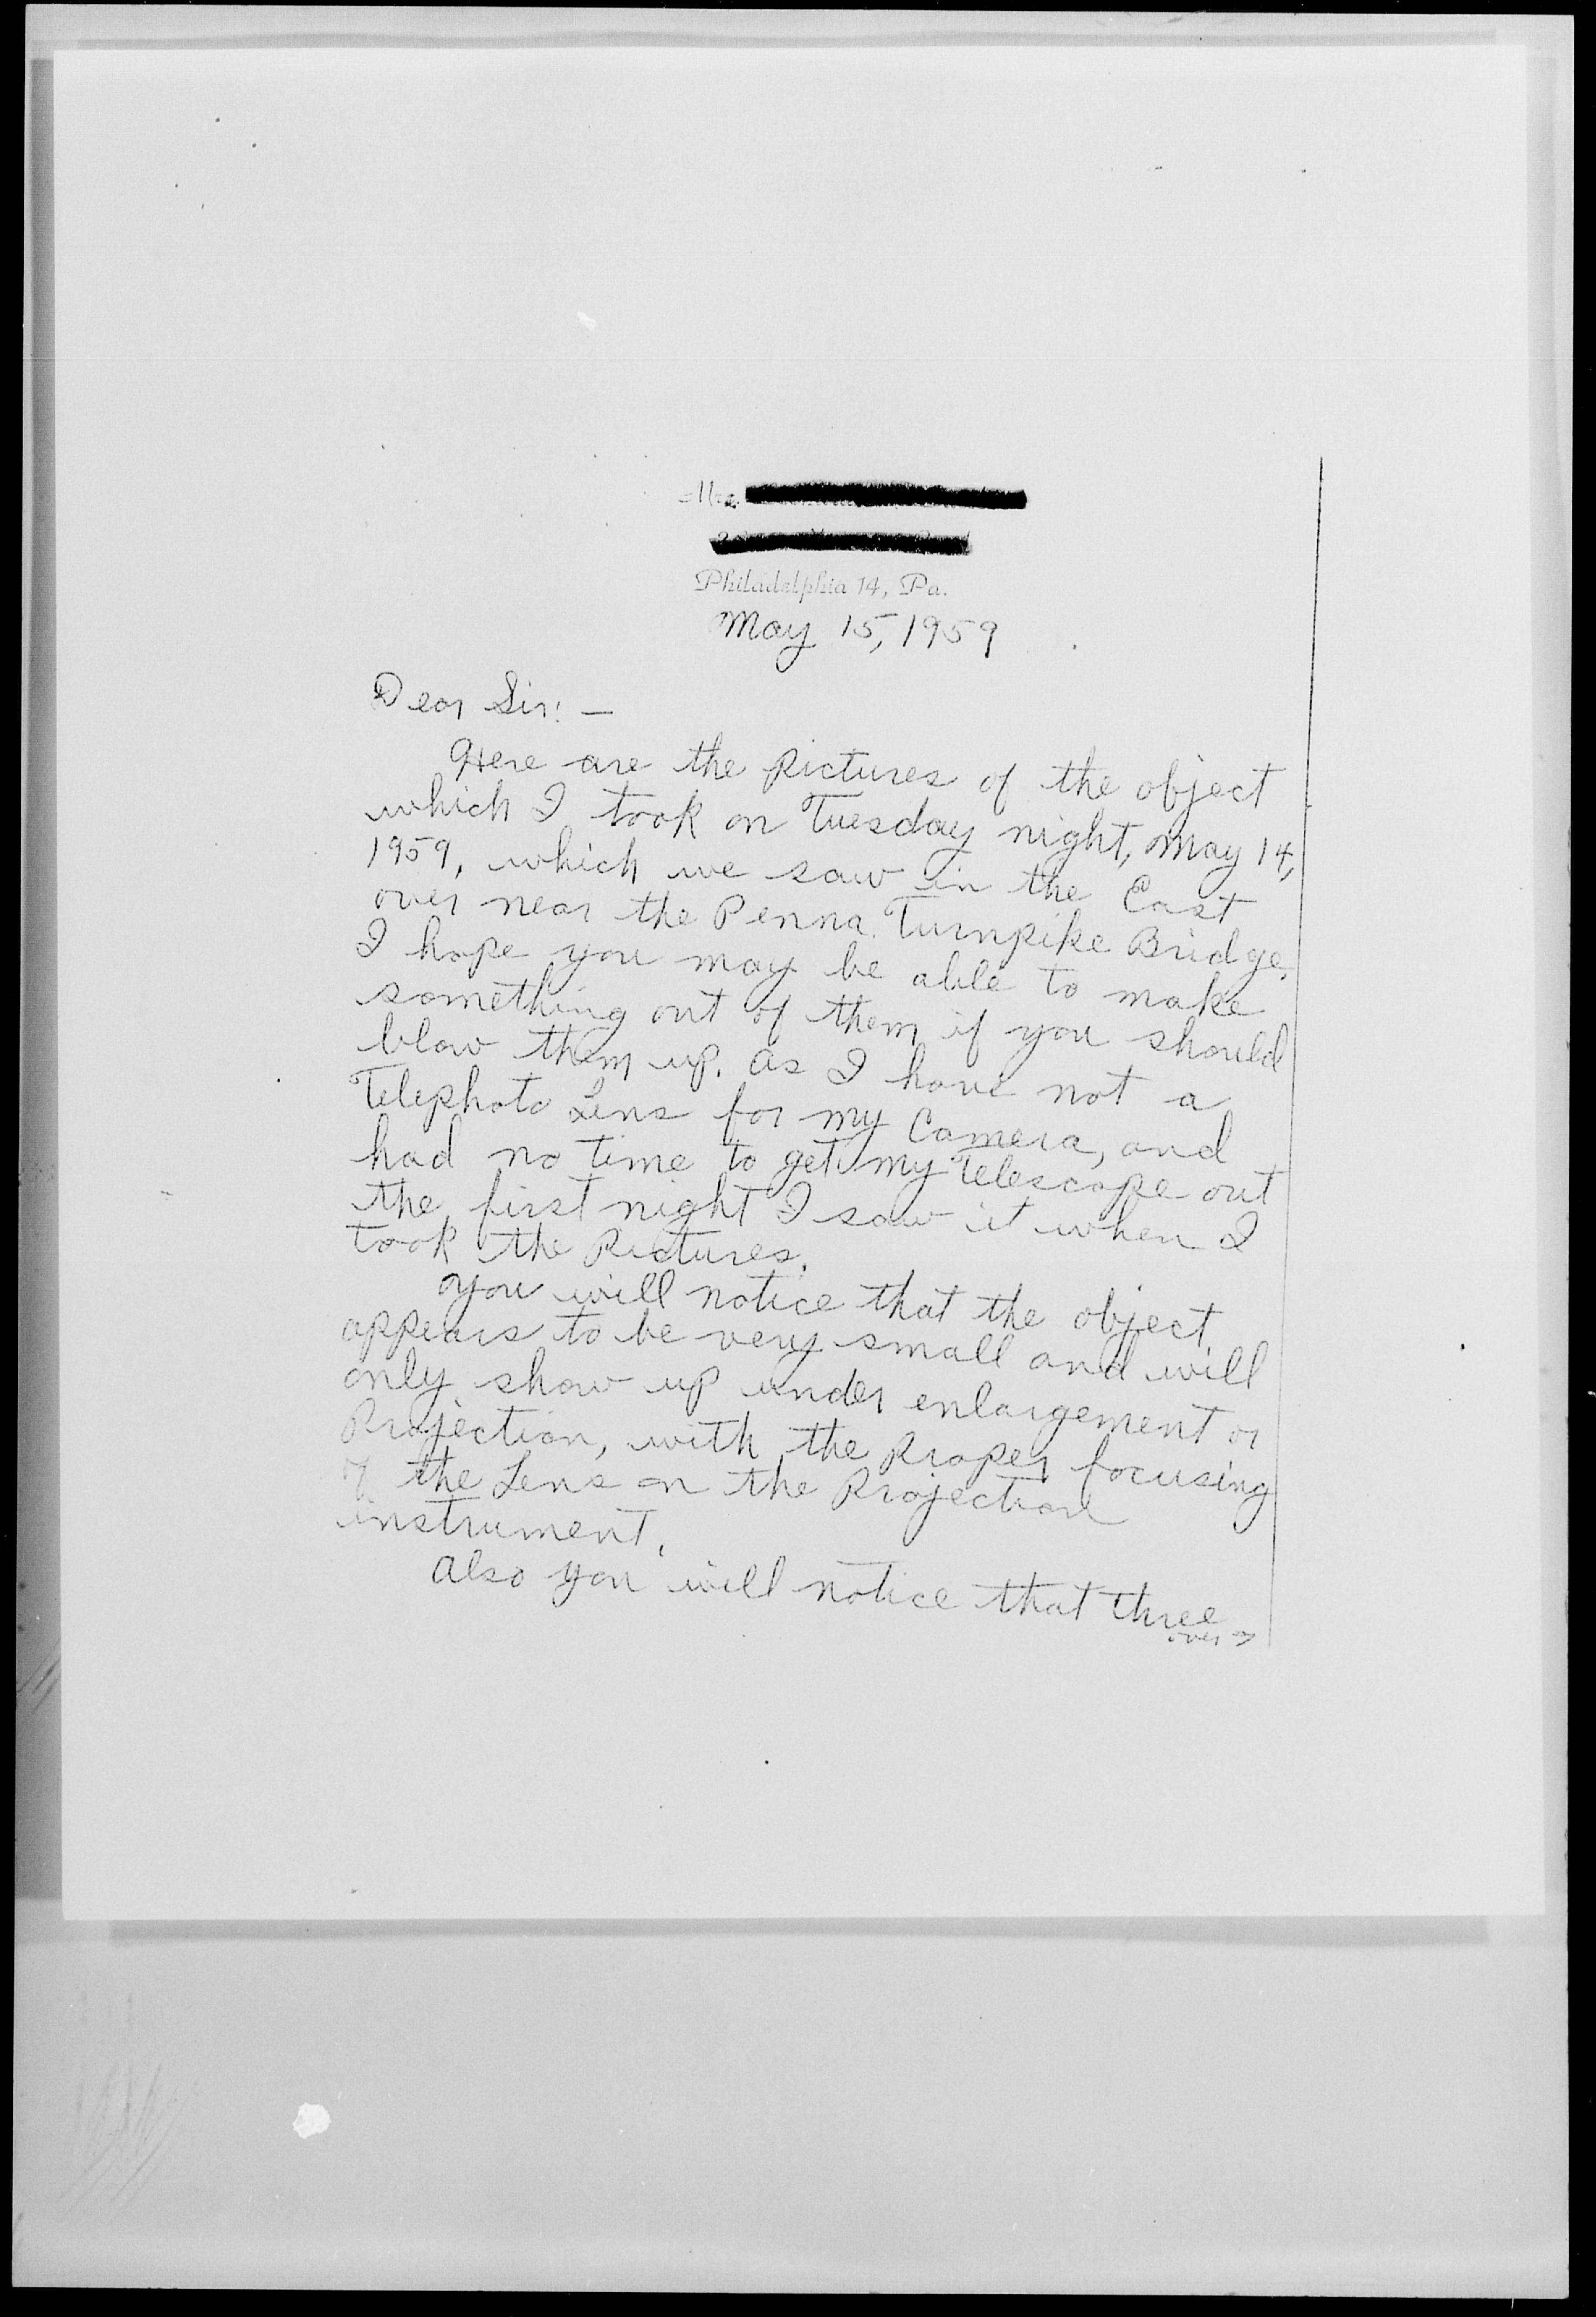 Mrs.
Philadelphia 14, Pa.
May 15, 1959
Dear Sir: —
Here are the Pictures of the object
which I took on Tuesday night, May 14,
1959, which we saw in the East
over near the Penna. Turnpike Bridge.
I hope you may be able to make
something out of them if you should
blow them up. As I have not a
Telephoto Lens for my Camera, and
had no time to get my Telescope out
the first night I saw it when I
took the Pictures.
You will notice that the object
appears to be very small and will
only show up under enlargement or
Projection, with the Proper focusing
of the Lens on the Projection
instrument.
Also you will notice that three
over →